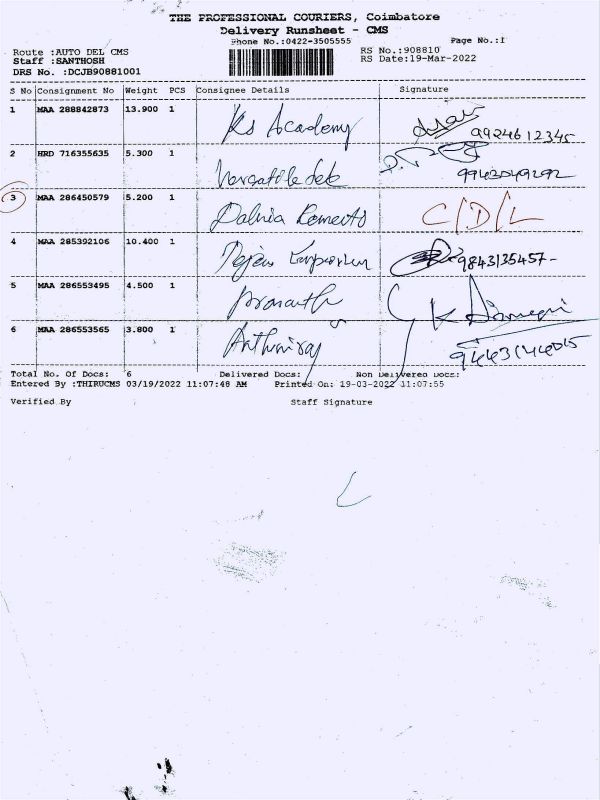 THE PROFESSIONAL COURIERS, Coimbatore
Delivery Runsheet - CMS
Phone No.:0422-3505555 Page No.:1
Route :AUTO DEL CMS RS No.:908810
Staff :SANTHOSH RS Date:19-Mar-2022
DRS No. :DCJB90881001
S No Consignment No Weight PCS Consignee Details Signature
1 MAA 288842873 13.900 1 Ks Academy 9924612345
2 HRD 716355635 5.300 1
3 MAA 286450579 5.200 1 Dalmia Cements C/D/L
4 MAA 285392106 10.400 1 9843135457-
5 MAA 286553495 4.500 1 Prasanth
6 MAA 286553565 3.800 1 Anthuniraj
Total No. Of Docs: 6 Delivered Docs: Non Delivered Docs:
Entered By :THIRUCMS 03/19/2022 11:07:48 AM Printed On: 19-03-2022 11:07:55
Verified By Staff Signature